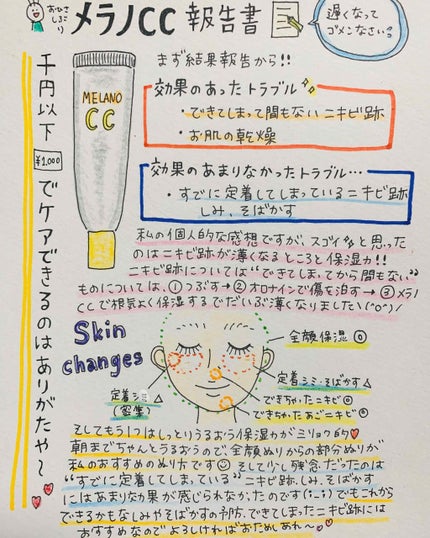 おひさしぶり
メラノCC 報告書
遅くなってゴメンなさい。
千円以下 ¥1,000 でケアできるのはありがたや〜
まず結果報告から!!
MELANO
CC
効果のあったトラブル
・できてしまって間もないニキビ跡
・お肌の乾燥
効果のあまりなかったトラブル…
・すでに定着してしまっているニキビ跡
しみ、そばかす
私の個人的な感想ですが、スゴイ!と思った
のはニキビ跡が薄くなるところと保湿力!!
ニキビ跡については“できてしまってから間もない”
ものについては、①つぶす→②オロナインで傷を治す→③メラノ
CCで根気よく保湿するでだいぶ薄くなりました\(^o^)/
Skin
changes
全顔保湿◎
定着シミ・そばかす△
定着シミ△
(密集)
できちゃったニキビ◎
できちゃったあごニキビ◎
そしてもう1つはしっとりうるおう保湿力がミリョク的
朝までちゃんとうるおうので、全顔ぬりからの部分ぬりが
私のおすすめのぬり方です そして少し残念だったのは
“すでに定着してしまっている”ニキビ跡、しみ、そばかす
にはあまり効果が感じられなかったのです でもこれから
できるかもなしみやそばかすの予防、できてしまったニキビ跡には
おすすめなのでよろしければおためしあれ〜